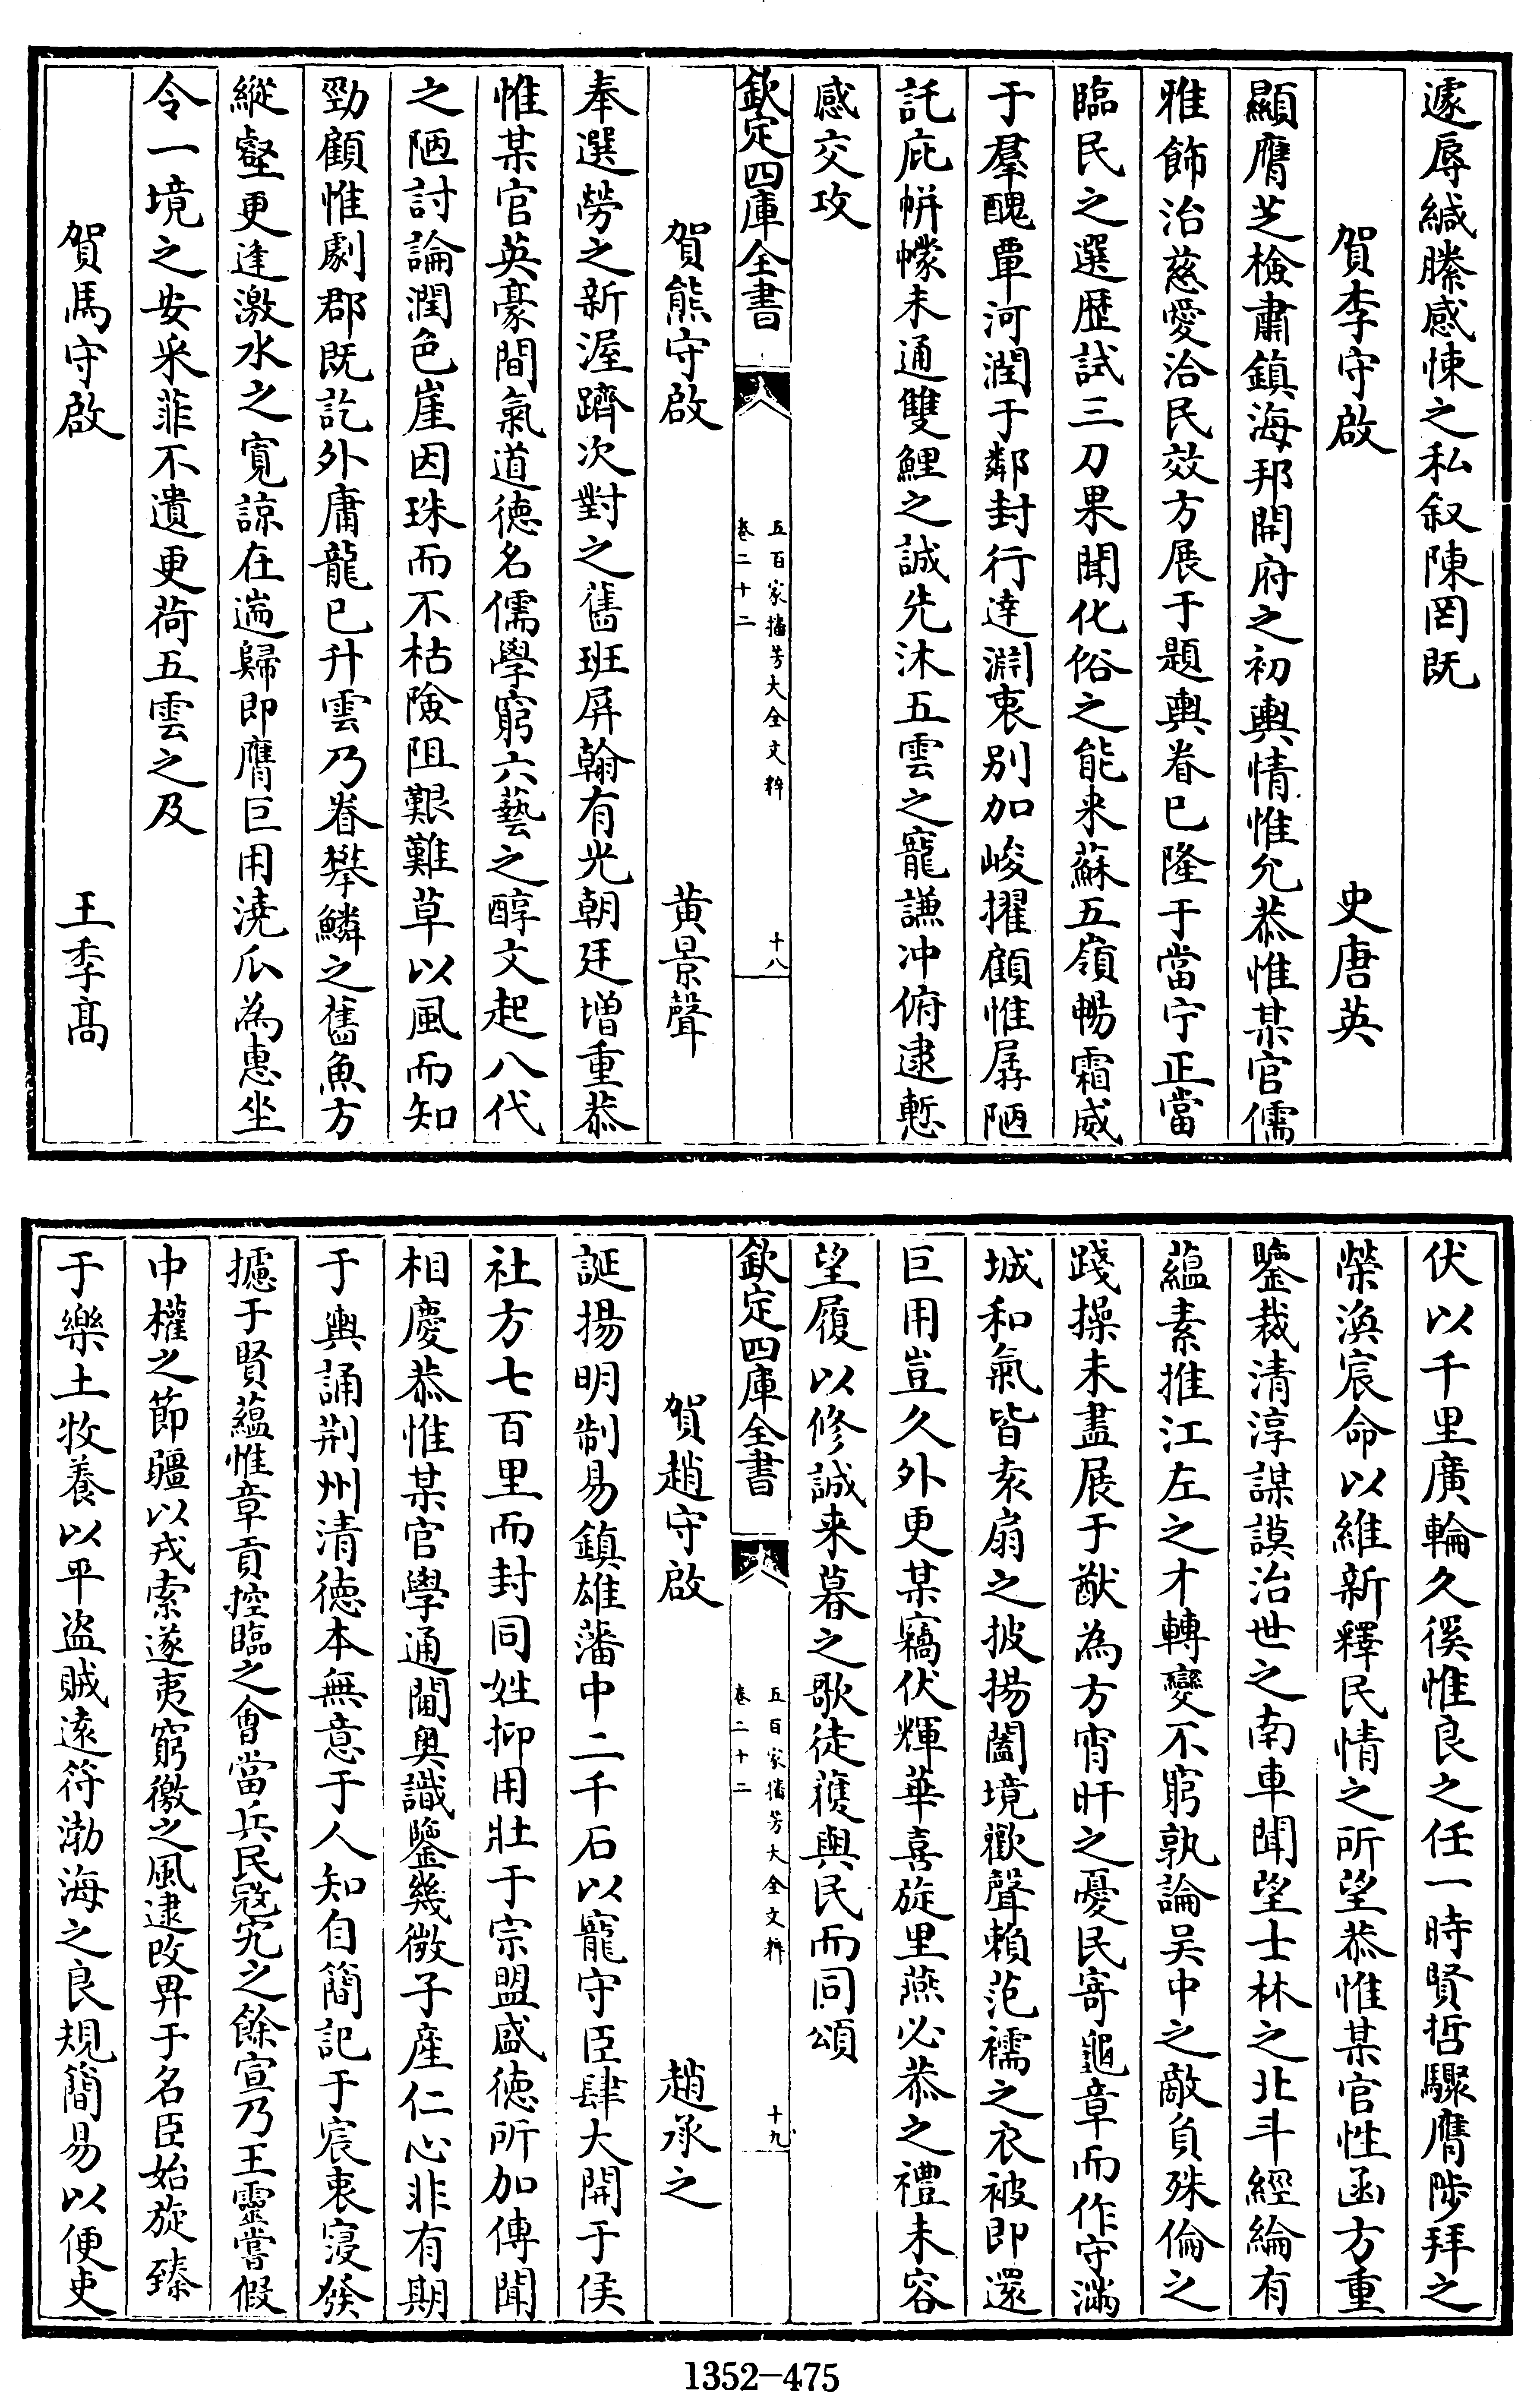 遽辱緘縢感悚之私叙陳罔既
賀李守啟 史唐英
顯膺芝檢肅鎮海邦開府之初輿情惟允恭惟某官儒
雅飾治慈愛洽民效方展于題輿眷已隆于當宁正當
臨民之選歴試三刀果聞化俗之能来蘇五嶺暢霜威
于羣醜覃河潤于鄰封行達淵衷别加峻擢顧惟孱陋
託庇帡幪未通雙鯉之誠先沐五雲之寵謙冲俯逮慙
感交攻
欽定四庫全書
五百家播芳大全文粹
卷二十二
十八
賀熊守啟 黄景聲
奉選勞之新渥躋次對之舊班屏翰有光朝廷増重恭
惟某官英豪間氣道徳名儒學窮六藝之醇文起八代
之陋討論潤色崖因珠而不枯險阻艱難草以風而知
勁顧惟劇郡既訖外庸龍已升雲乃眷攀鱗之舊魚方
縱壑更逢激水之寛諒在遄歸即膺巨用澆瓜為惠坐
令一境之安采菲不遺更荷五雲之及
賀馬守啟 王季髙
伏以千里廣輪久徯惟良之任一時賢哲驟膺陟拜之
榮渙宸命以維新釋民情之所望恭惟某官性函方重
鑒裁清淳謀謨治世之南車聞望士林之北斗經綸有
蘊素推江左之才轉變不窮孰論吴中之敵負殊倫之
踐操未盡展于猷為方宵旰之憂民寄龜章而作守滿
城和氣皆袁扇之披揚闔境歡聲賴范襦之衣被即還
巨用豈久外更某竊伏輝華喜旋里燕必恭之禮未容
望履以修誠来暮之歌徒獲與民而同頌
欽定四庫全書
五百家播芳大全文粹
卷二十二
十九
賀趙守啟 趙承之
誕揚明制易鎮雄藩中二千石以寵守臣肆大開于侯
社方七百里而封同姓抑用壯于宗盟盛徳所加傳聞
相慶恭惟某官學通閫奥識鑒幾微子產仁心非有期
于輿誦荆州清徳本無意于人知自簡記于宸衷寖發
攄于賢蘊惟章貢控臨之會當兵民寇宄之餘宣乃王靈嘗假
中權之節疆以戎索遂夷窮徼之風逮改畀于名臣始旋臻
于樂土牧養以平盜賊逺符渤海之良規簡易以便吏
1352-475